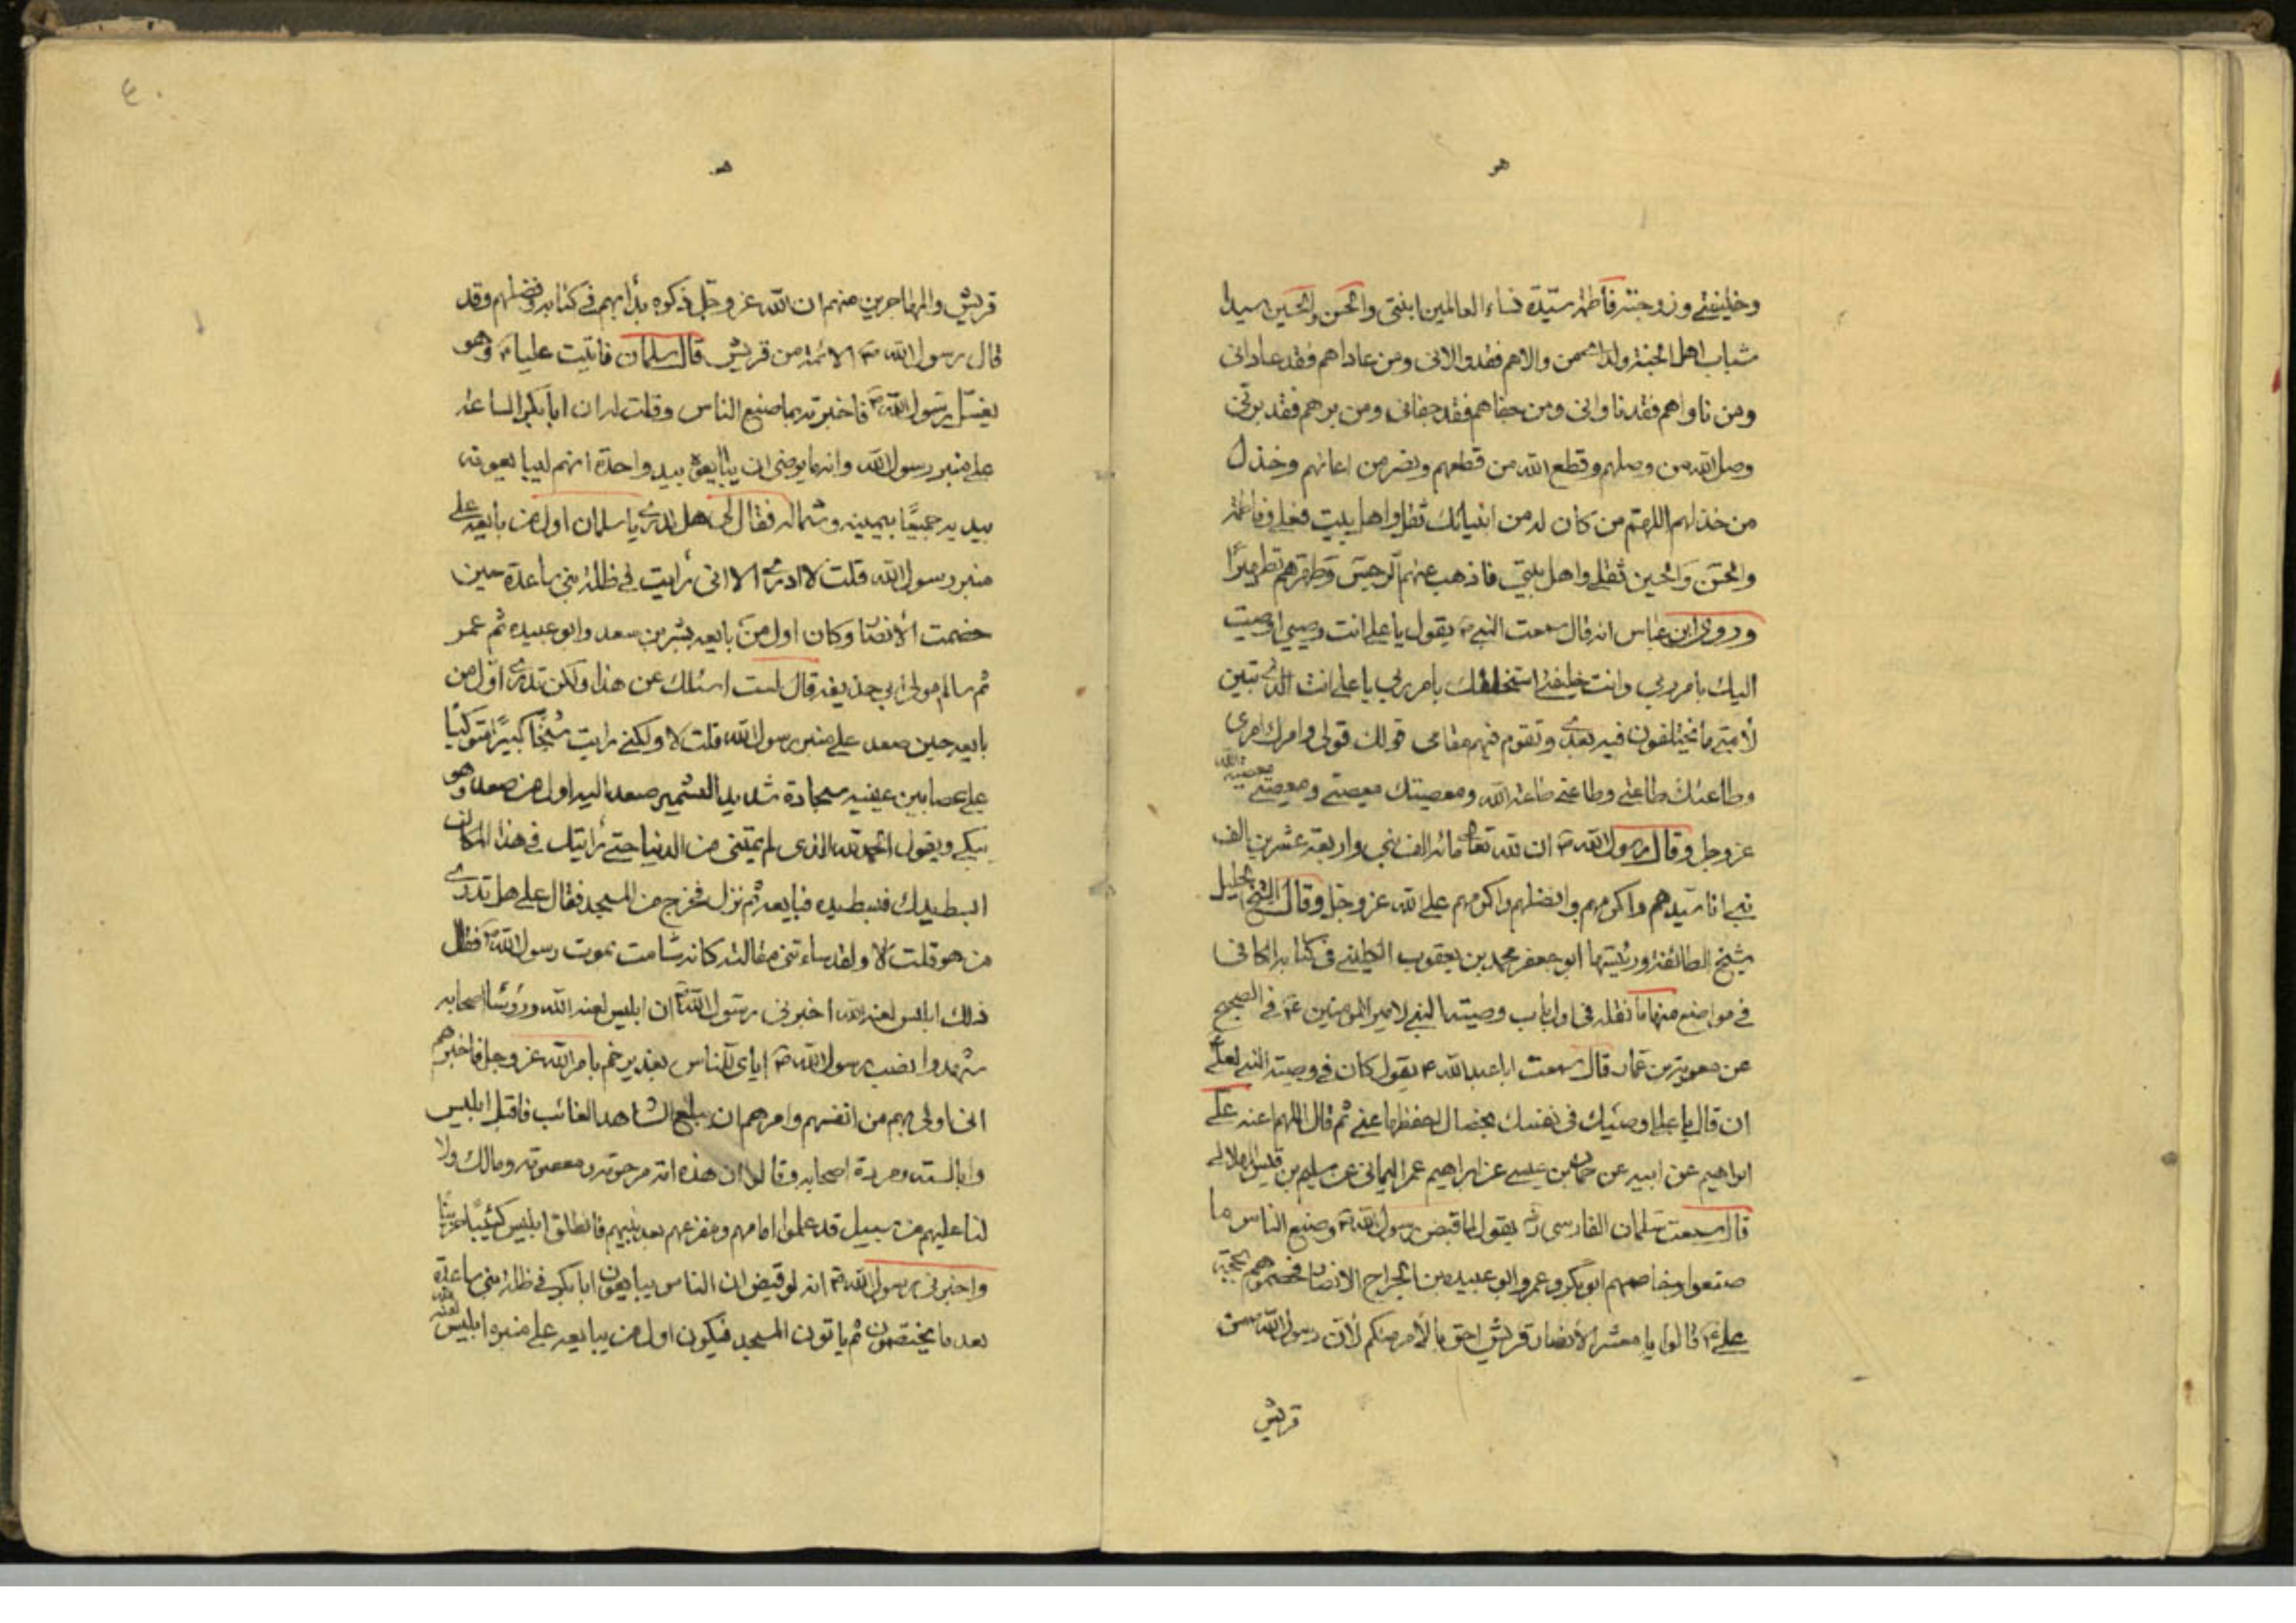 هو
وخليفتي وزوجته فاطمة سيّدة نساء العالمين ابنتي والحسن والحسين سيدا
شباب اهل الجنة ولداهمن والاهم فقد والاني ومن عاداهم فقد عاداني
ومن ناواهم فقد ناواني ومن جفاهم فقد جفاني ومن برهم فقد برّني
وصل الله من وصلهم وقطع الله من قطعهم ونصر من اعانهم وخذل
من خذلهم اللهم من كان له من انبيائك ثقل واهل بيت فعلي وفاطمة
والحسن والحسين ثقلي واهل بيتي فاذهب عنهم الرجس وطهرهم تطهيرًا
وروي ابن عباس انه قال سمعت النبي ص يقول يا علي انت وصيي اوصيت
اليك بامر ربي وانت خليفتي استخلفتك بامر ربي يا علي انت الذي تبين
لأمتي ما يختلفون فيه بعدي وتقوم فيهم مقامي قولك قولي وامرك امري
وطاعتك طاعتي وطاعتي طاعة الله ومعصيتك معصيتي ومعصيتي معصية الله
عز وجل وقال رسول الله ص ان لله تعالى مائة الف نبي واربعة عشرين الف
نبي انا سيّدهم واكرمهم وافضلهم واكرمهم على الله عز وجل وقال الشيخ الجليل
شيخ الطائفة ورئيسها ابو جعفر محمد بن يعقوب الكليني في كتابه الكافي
في مواضع منها ما نقله في اول باب وصية النبي لامير المؤمنين ع في الصحيح
عن معوية بن عمار قال سمعت ابا عبد الله ع يقول كان في وصية النبي لعلي
ان قال يا علي اوصيك في نفسك بخصال احفظها عني ثم قال اللهم اعنه علي
ابراهيم عن ابيه عن حماد بن عيسى عن ابراهيم عمر اليماني عن سليم بن قيس الهلالي
قال سمعت سلمان الفارسي رض يقول لما قبض رسول الله ص وصنع الناس ما
صنعوا وخاصمهم ابو بكر وعمر وابو عبيده بن الجراح الانصار فخصموهم بحجة
علي ع قالوا يا معشر الأنصار قريش احق بالأمر منكم لأن رسول الله ص من
قريش
٤٠
هو
قريش والمهاجرين منهم ان الله عز وجل ذكره بدأ بهم في كتابه وفضلهم وقد
قال رسول الله ص الائمة من قريش قال سلمان فاتيت عليا ع وهو
يغسل رسول الله ص فاخبرته بما صنع الناس وقلت له ان ابا بكر الساعة
على منبر رسول الله وانه ما يرضى ان يبايعوه بيد واحدة انهم ليبايعونه
بيديه جميعًا بيمينه وشماله فقال لي هل تدري يا سلمان اول من بايعه على
منبر رسول الله قلت لا ادري الا اني رأيت في ظلة بني ساعدة حين
خصمت الأنصار وكان اول من بايعه بشر بن سعد وابو عبيده ثم عمر
ثم سالم مولى ابي حذيفة قال لست اسئلك عن هذا ولكن تدري اوّل من
بايعه حين صعد على منبر رسول الله قلت لا ولكني رايت شيخًا كبيرًا متوكيًا
على عصا بين عينيه سجادة شديد التشمير صعد اليه اول من صعد وهو
يبكي ويقول الحمد لله الذي لم يمتني من الدنيا حتى رأيتك في هذا المكان
ابسط يدك فبسط يده فبايعه ثم نزل فخرج من المسجد فقال علي هل تدري
من هو قلت لا ولقد ساءتني مقالته كانه شامت بموت رسول الله ص فقال
ذلك ابليس لعنه الله اخبرني رسول الله ص ان ابليس لعنه الله ورؤسا اصحابه
شهدوا نصب رسول الله ص اياي للناس بغدير خم بامر الله عز وجل فاخبرهم
اني اولى بهم من انفسهم وامرهم ان يبلغ الشاهد الغائب فاقبل ابليس
وابالسته ومردة اصحابه وقالوا ان هذه امة مرحومة ومعصومة ومالك ولا
لنا عليهم من سبيل قد علموا امامهم ومفزعهم بعد نبيهم فانطلق ابليس كئيبًا حزينًا
واخبرني رسول الله ص انه لو قبض ان الناس يبايعون ابا بكر في ظلة بني ساعدة
بعد ما يختصمون ثم ياتون المسجد فيكون اول من يبايعه على منبره ابليس لعنه الله